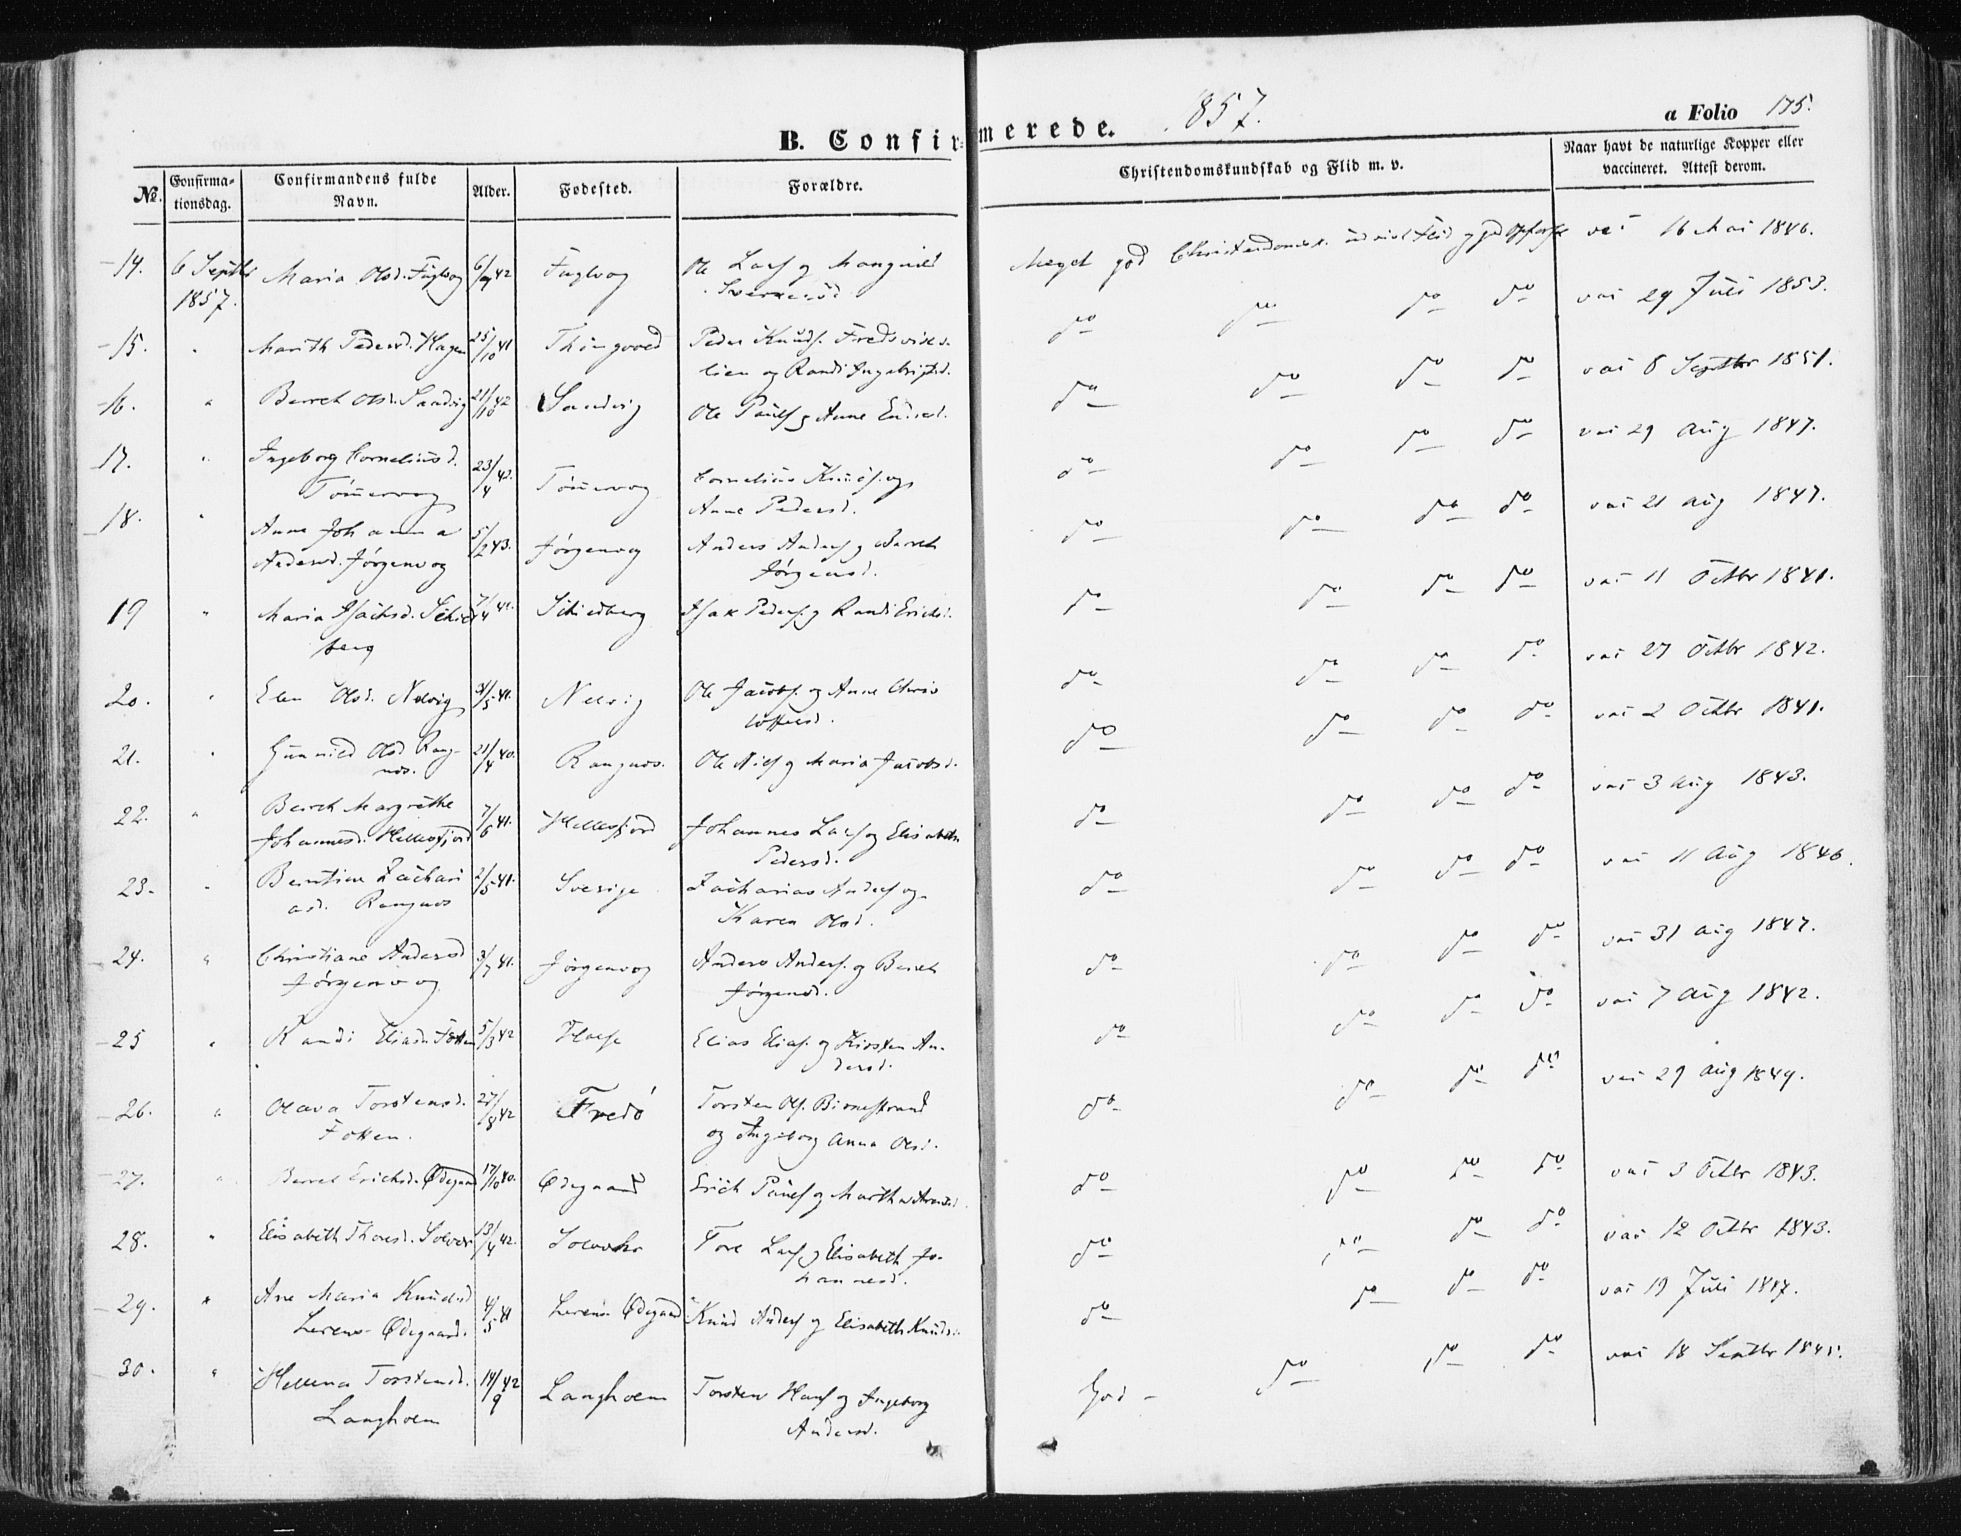 1857.
a Folio 175.
B. Confirmerede.
No. Confirmationsdag. Confirmandens fulde Navn. Alder. Fødested. Forældre. Christendomskundskab og Flid m. v. Naar havt de naturlige Kopper eller vaccineret. Attest derom.
14. 6 Septbr 1857. Maria Olsd. Fuglvog 6/9 42 Fuglvog Ole Lars. og Mangnild Meget god Christendomsk. vac 16 Mai 1846.
15. " Marith Pedersd. Hagen 25/10 41 Thingvoed Peder Knuds. lien og Randi Ingebrigtsd. do do do do vac 29 Juli 1853.
16. " Berret Olsd. Sandvig 21/10 42 Sandvig Ole Pauls. og Anne Endresd. do do do do vac 8 Septbr 1851.
17. " Ingeborg Corneliusd. Tömmervog 23/4 42. Tömmervog Cornelius Knuds. og Anne Pedersd. do do do do vac 29 Aug 1847.
18. " Anne Johanna Andersd. Jørgenvog 5/2 43. Jørgenvog Anders Anders. og Berret Jørgensd. do do do do vac 21 Aug 1847.
19 " Maria Isachsd. Schiedberg 7/4 41. Schiedberg Isak Peders. og Randi Ericksd. do do do do vac 11 Octbr 1841.
20. " Elen Olsd. Nelvig 31/5 41. Nelvig Ole Jacobs. og Anne Christoffersd. do do do do vac 27 Octbr 1842.
21. " Gunnild Olsd. Rangnøs. 21/4 40. Rangnøs. Ole Niels. og Maria Jacobsd. do do do do vac 2 Octbr 1841.
22. " Berret Margrethe Johannesd. Hellesfjord 7/6 41. Hellesfjord Johannes Lars. og Elisabeth Pedersd. do do do do vac 3 Aug 1843.
23. " Berntine Zachariasd. Rangnøs 2/5 41. Sverige Zacharias Anders. og Karen Olsd. do do do do vac 11 Aug 1846.
24. " Christiane Andersd. Jørgenvog 3/7 41. Jørgenvog Anders Anders. og Berret Jørgensd. do do do do vac 31 Aug 1847.
25 " Randi Eliasd. Fotten 5/3 42 Elias Elias. og Kirsten Andersd. do do do do vac 7 Aug 1842.
26. " Olava Torstensd. Fotten. 27/8 42 Fredö Torsten Ols. Birnestrand og Ingeborg Anna Olsd. do do do do vac 29 Aug 1849.
27. " Berret Ericksd. Ødegaard 17/10 40. Ødegaard Erich Pauls. og do do do do vac 3 Octbr 1843.
28. " Elisabeth Thoresd. 13/4 42. Tore Lars. og Elisabeth Johannesd. do do do do vac 12 Octbr 1843.
29. " Ane Maria Knudsd. Lerens-Ødegaard. 4/5 41 Lerens Ødegaard Knud Anders. og Elisabeth Knudsd. do do do do vac 19 Juli 1847.
30. " Hellena Torstensd. Langholm 14/9 42 Langholm Torsten Hans. og Ingeborg Andersd. God - do do do vac 18 Septbr 1845.